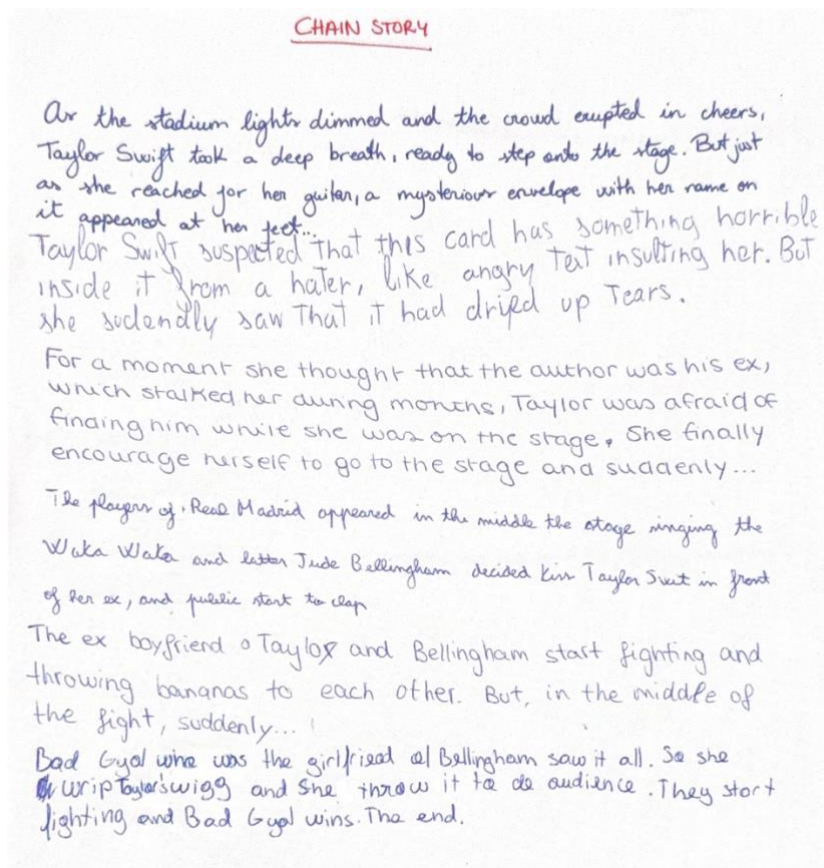 CHAIN STORY
As the stadium lights dimmed and the crowd erupted in cheers,
Taylor Swift took a deep breath, ready to step onto the stage. But just
as she reached for her guitar, a mysterious envelope with her name on
it appeared at her feet...
Taylor Swift suspected that this card has something horrible
inside it from a hater, like angry text insulting her. But
she sudendly saw that it had dryed up Tears.
For a moment she thought that the author was his ex,
which stalked her during months, Taylor was afraid of
finding him while she was on the stage. She finally
encourage herself to go to the stage and suddenly...
The players of Real Madrid appeared in the middle the stage singing the
Waka Waka and latter Jude Bellingham decided kiss Taylor Swit in front
of her ex, and public start to clap
The ex boyfriend o Taylor and Bellingham start fighting and
throwing bananas to each other. But, in the middle of
the fight, suddenly...
Bad Gyal who was the girlfriend of Bellingham saw it all. So she
wrip Taylor's wigg and she throw it to de audience. They start
fighting and Bad Gyal wins. The end.